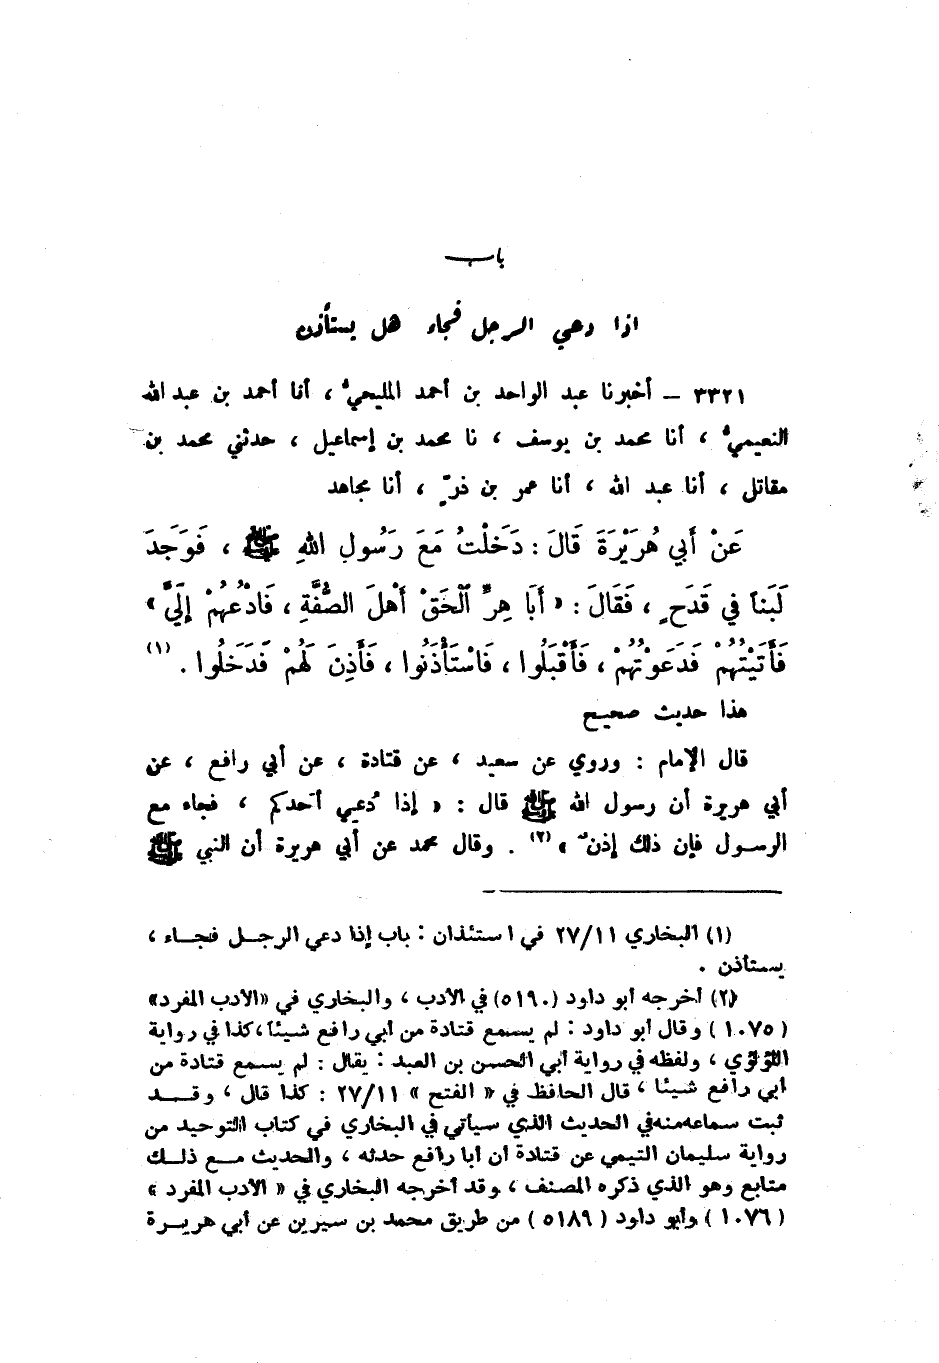 باب
اذا دعي الرجل فجاء هل يستأذن
٣٣٢١ – أخبرنا عبد الواحد بن أحمد المليحيُّ ، أنا أحمد بن عبد الله
النعيميُّ ، أنا محمد بن يوسف ، نا محمد بن إسماعيل ، حدثني محمد بن
مقاتل ، أنا عبد الله ، أنا عمر بن ذرٍّ ، أنا مجاهد
عَنْ أَبي هُرَيْرَةَ قَالَ : دَخَلْتُ مَعَ رَسُولِ اللهِ ﷺ ، فَوَجَدَ
لَبَناً في قَدَحٍ ، فَقَالَ : « أَبَا هِرٍّ ٱلْحَقْ أَهْلَ الصُّفَّةِ ، فَادْعُهُمْ إِلَيَّ »
فَأَتَيْتُهُمْ فَدَعَوْتُهُمْ ، فَأَقْبَلُوا ، فَاسْتَأْذَنُوا ، فَأَذِنَ لَهُمْ فَدَخَلُوا . (١)
هذا حديث صحيح
قال الإمام : وروي عن سعيد ، عن قتادة ، عن أبي رافع ، عن
أبي هريرة أن رسول الله ﷺ قال : « إذا دُعي أحدكم ، فجاء مع
الرسول فإن ذلك إذنٌ » (٢) . وقال محمد عن أبي هريرة أن النبي ﷺ
(١) البخاري ٢٧/١١ في استئذان : باب إذا دعي الرجل فجاء ،
يستأذن .
(٢) أخرجه أبو داود (٥١٩٠) في الأدب ، والبخاري في «الأدب المفرد»
(١٠٧٥) وقال أبو داود : لم يسمع قتادة من أبي رافع شيئا ، كذا في رواية
اللؤلؤي ، ولفظه في رواية أبي الحسن بن العبد : يقال : لم يسمع قتادة من
أبي رافع شيئا ، قال الحافظ في « الفتح » ٢٧/١١ : كذا قال ، وقد
ثبت سماعه منه في الحديث الذي سيأتي في البخاري في كتاب التوحيد من
رواية سليمان التيمي عن قتادة أن أبا رافع حدثه ، والحديث مع ذلك
متابع وهو الذي ذكره المصنف ، وقد أخرجه البخاري في « الأدب المفرد »
(١٠٧٦) وأبو داود (٥١٨٩) من طريق محمد بن سيرين عن أبي هريرة